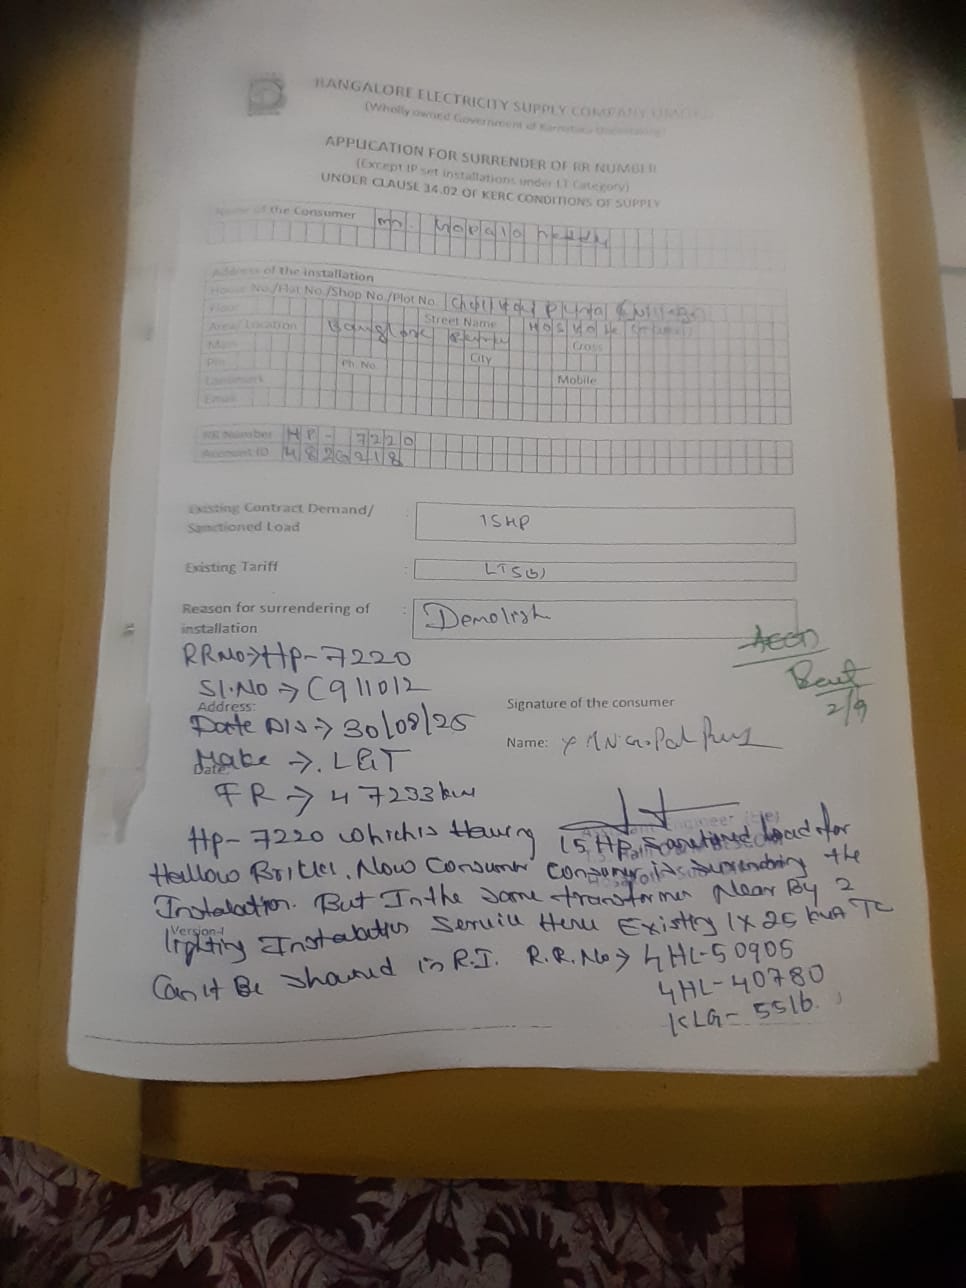 BANGALORE ELECTRICITY SUPPLY COMPANY LIMITED
(Wholly owned Government of Karnataka Undertaking)
APPLICATION FOR SURRENDER OF RR NUMBER
(Except IP set installations under LT Category)
UNDER CLAUSE 34.02 OF KERC CONDITIONS OF SUPPLY
Name of the Consumer
Address of the installation
House No./Flat No./Shop No./Plot No.
Floor Street Name
Area/ Location Cross
Main City
Pin Ph. No. Mobile
Landmark
Email
RR Number HP- 7220
Account ID
Existing Contract Demand/ :
Sanctioned Load 15HP
Existing Tariff : LT5(b)
Reason for surrendering of : Demolish
installation
RRNo→HP-7220
Sl.No → C911012
Address: Signature of the consumer
Date Dis→ 30/08/25 2/9
Name:
Make →. L&T
Date:
FR → 47233 kw
Hp-7220 which is Having 15 HP Sanctioned load for
Hallow Bricks. Now Consumer is surrendring the
Instalation. But In the same transformer Near By 2
lighting Instalation Service Here Existing 1X25 kVA TC
Version-1
Can't Be shared in R.I. R.R.No→ 4HL-50905
4HL-40780
KLG-5516.